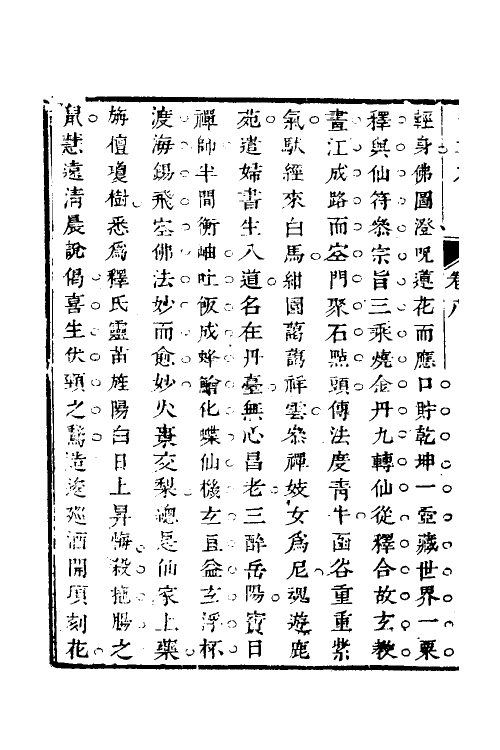 卷八
輕身佛圖澄咒蓮花而應口貯乾坤一壺藏世界一粟
釋與仙符參宗旨三乘燒金丹九轉仙從釋合故玄教
畫江成路而空門聚石點頭傳法度青牛函谷重重紫
氣馱經來白馬紺園藹藹祥雲參禪妓女爲尼魂遊鹿
苑遣婦書生入道名在丹臺無心昌老三醉岳陽賓日
禪師半間衡岫吐飯成蜂鱠化蝶仙機玄且益玄浮杯
渡海錫飛空佛法妙而愈妙火棗交梨總是仙家上藥
旃檀瓊樹悉爲釋氏靈苗旌陽白日上昇悔殺拖腸之
鼠慧遠清晨說偈喜生伏頸之鵞造逡廵酒開頃刻花